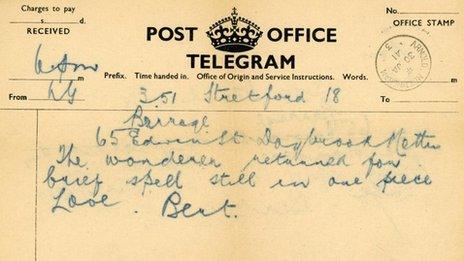 Charges to pay
s. d.
RECEIVED
POST OFFICE
TELEGRAM
No.
OFFICE STAMP
ARNOLD
Prefix. Time handed in. Office of Origin and Service Instructions. Words.
From
To
3.51 Stretford 18
Burrage
65 Edwin St Daybrook Notts
The wanderer returned for
brief spell still in one piece
Love. Bert.